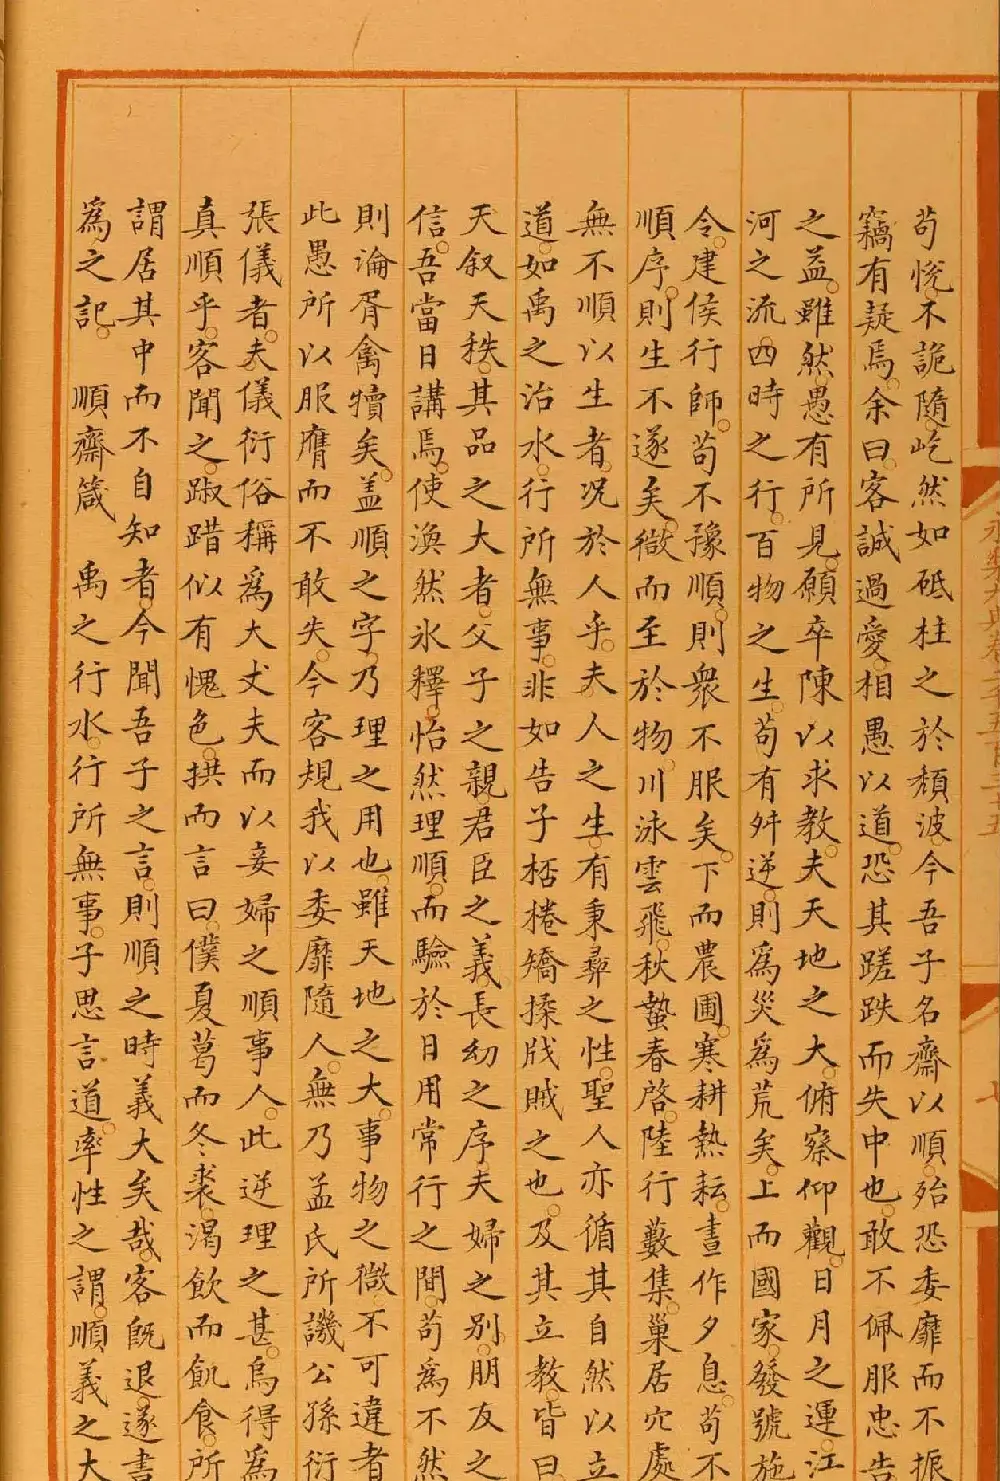 永樂大典卷之二千五百三十五
七
苟悅。不詭隨。屹然如砥柱之於頹波。今吾子名齋以順。殆恐委靡而不振
竊有疑焉。余曰。客誠過愛。相愚以道。恐其蹉跌而失中也。敢不佩服忠告
之益。雖然。愚有所見。願卒陳以求教。夫天地之大。俯察仰觀。日月之運。江
河之流。四時之行。百物之生。苟有舛逆。則為災為荒矣。上而國家。發號施
令。建侯行師。苟不豫順。則衆不服矣。下而農圃。寒耕熱耘。晝作夕息。苟不
順序。則生不遂矣。微而至於物。川泳雲飛。秋蟄春啓。陸行藪集。巢居穴處
無不順以生者。况於人乎。夫人之生。有秉彝之性。聖人亦循其自然以立
道。如禹之治水。行所無事。非如告子桮棬矯揉戕賊之也。及其立教。皆曰
天叙天秩。其品之大者。父子之親。君臣之義。長幼之序。夫婦之別。朋友之
信。吾當日講焉。使渙然氷釋。怡然理順。而驗於日用常行之間。苟為不然
則淪胥禽犢矣。盖順之字。乃理之用也。雖天地之大。事物之微不可違者
此愚所以服膺而不敢失。今客規我以委靡隨人。無乃孟氏所譏公孫衍
張儀者。夫儀衍俗稱為大丈夫而以妾婦之順事人。此逆理之甚。烏得為
真順乎。客聞之。踧踖似有愧色。拱而言曰。僕夏葛而冬裘。渴飲而飢食。所
謂居其中而不自知者。今聞吾子之言。則順之時義大矣哉。客既退。遂書
為之記。 順齋箴 禹之行水。行所無事。子思言道。率性之謂。順義之大